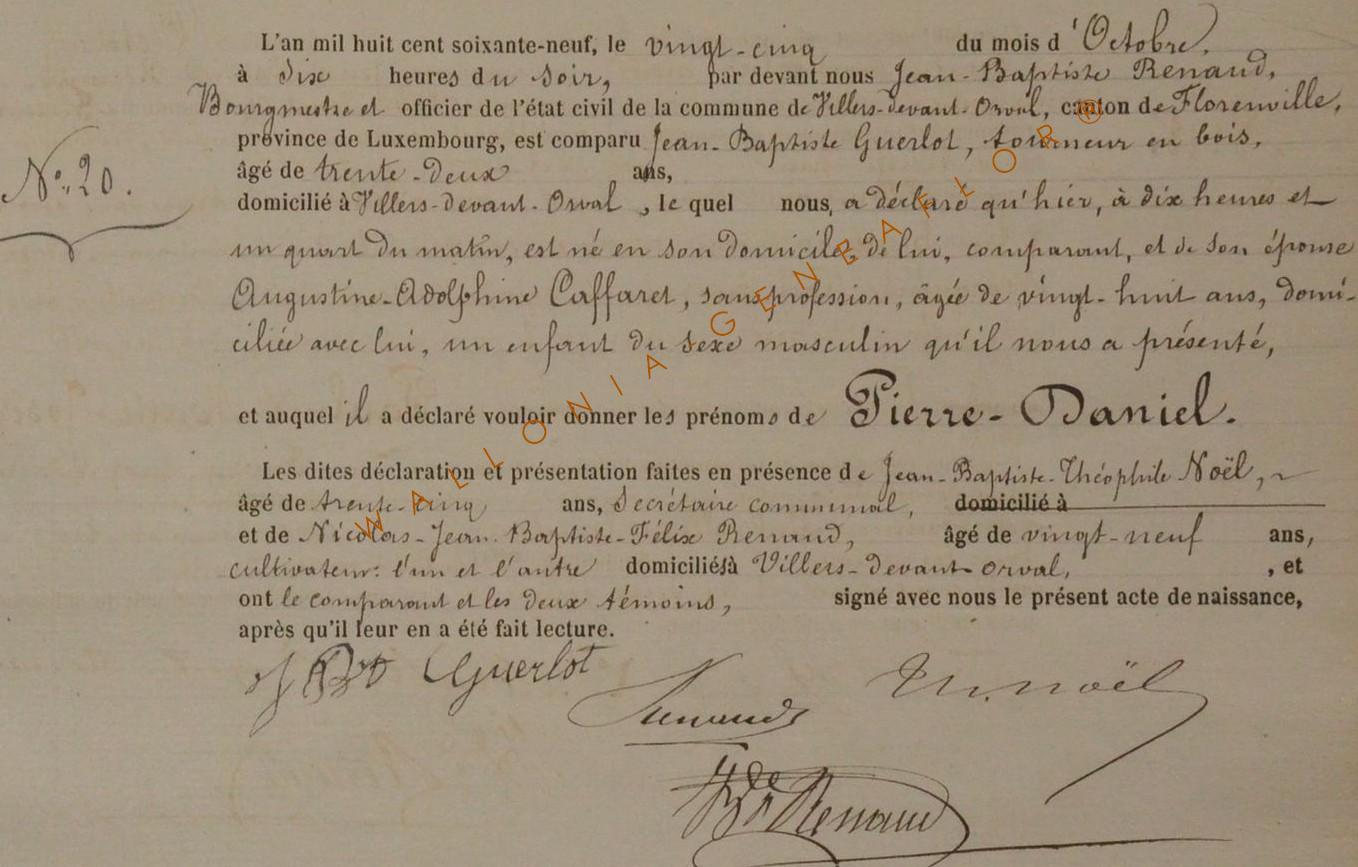 L'an mil huit cent soixante-neuf, le vingt-cinq du mois d'Octobre,
à dix heures du soir, par devant nous Jean-Baptiste Renaud,
Bourgmestre et officier de l'état civil de la commune de Villers-devant-Orval, canton de Florenville,
province de Luxembourg, est comparu Jean-Baptiste Guerlot, tourneur en bois,
No. 20.
âgé de trente-deux ans,
domicilié à Villers-devant-Orval, le quel nous, a déclaré qu'hier, à dix heures et
un quart du matin, est né en son domicile, de lui, comparant, et de son épouse
Augustine-Adolphine Caffaret, sans profession, âgée de vingt-huit ans, domi-
ciliée avec lui, un enfant du sexe masculin qu'il nous a présenté,
et auquel il a déclaré vouloir donner les prénoms de Pierre-Daniel.
Les dites déclaration et présentation faites en présence de Jean-Baptiste-Théophile Noël,
âgé de trente-cinq ans, Secrétaire communal, domicilié à
et de Nicolas-Jean-Baptiste-Félix Renaud, âgé de vingt-neuf ans,
cultivateur: l'un et l'autre domiciliés à Villers-devant-Orval, , et
ont le comparant et les deux témoins, signé avec nous le présent acte de naissance,
après qu'il leur en a été fait lecture.
J Bte Guerlot
Renaud
Th. Noël
Renaud
WALLONIA GENEAFLOR ®